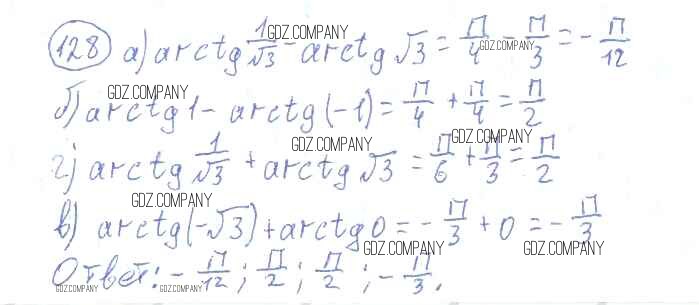 128 а) arctg 1/√3 - arctg √3 = П/4 - П/3 = - П/12
б) arctg 1 - arctg (-1) = П/4 + П/4 = П/2
г) arctg 1/√3 + arctg √3 = П/6 + П/3 = П/2
в) arctg (-√3) + arctg 0 = - П/3 + 0 = - П/3
Ответ: - П/12; П/2; П/2; - П/3.
GDZ.COMPANY
GDZ.COMPANY
GDZ.COMPANY
GDZ.COMPANY
GDZ.COMPANY
GDZ.COMPANY
GDZ.COMPANY
GDZ.COMPANY
GDZ.COMPANY
GDZ.COMPANY